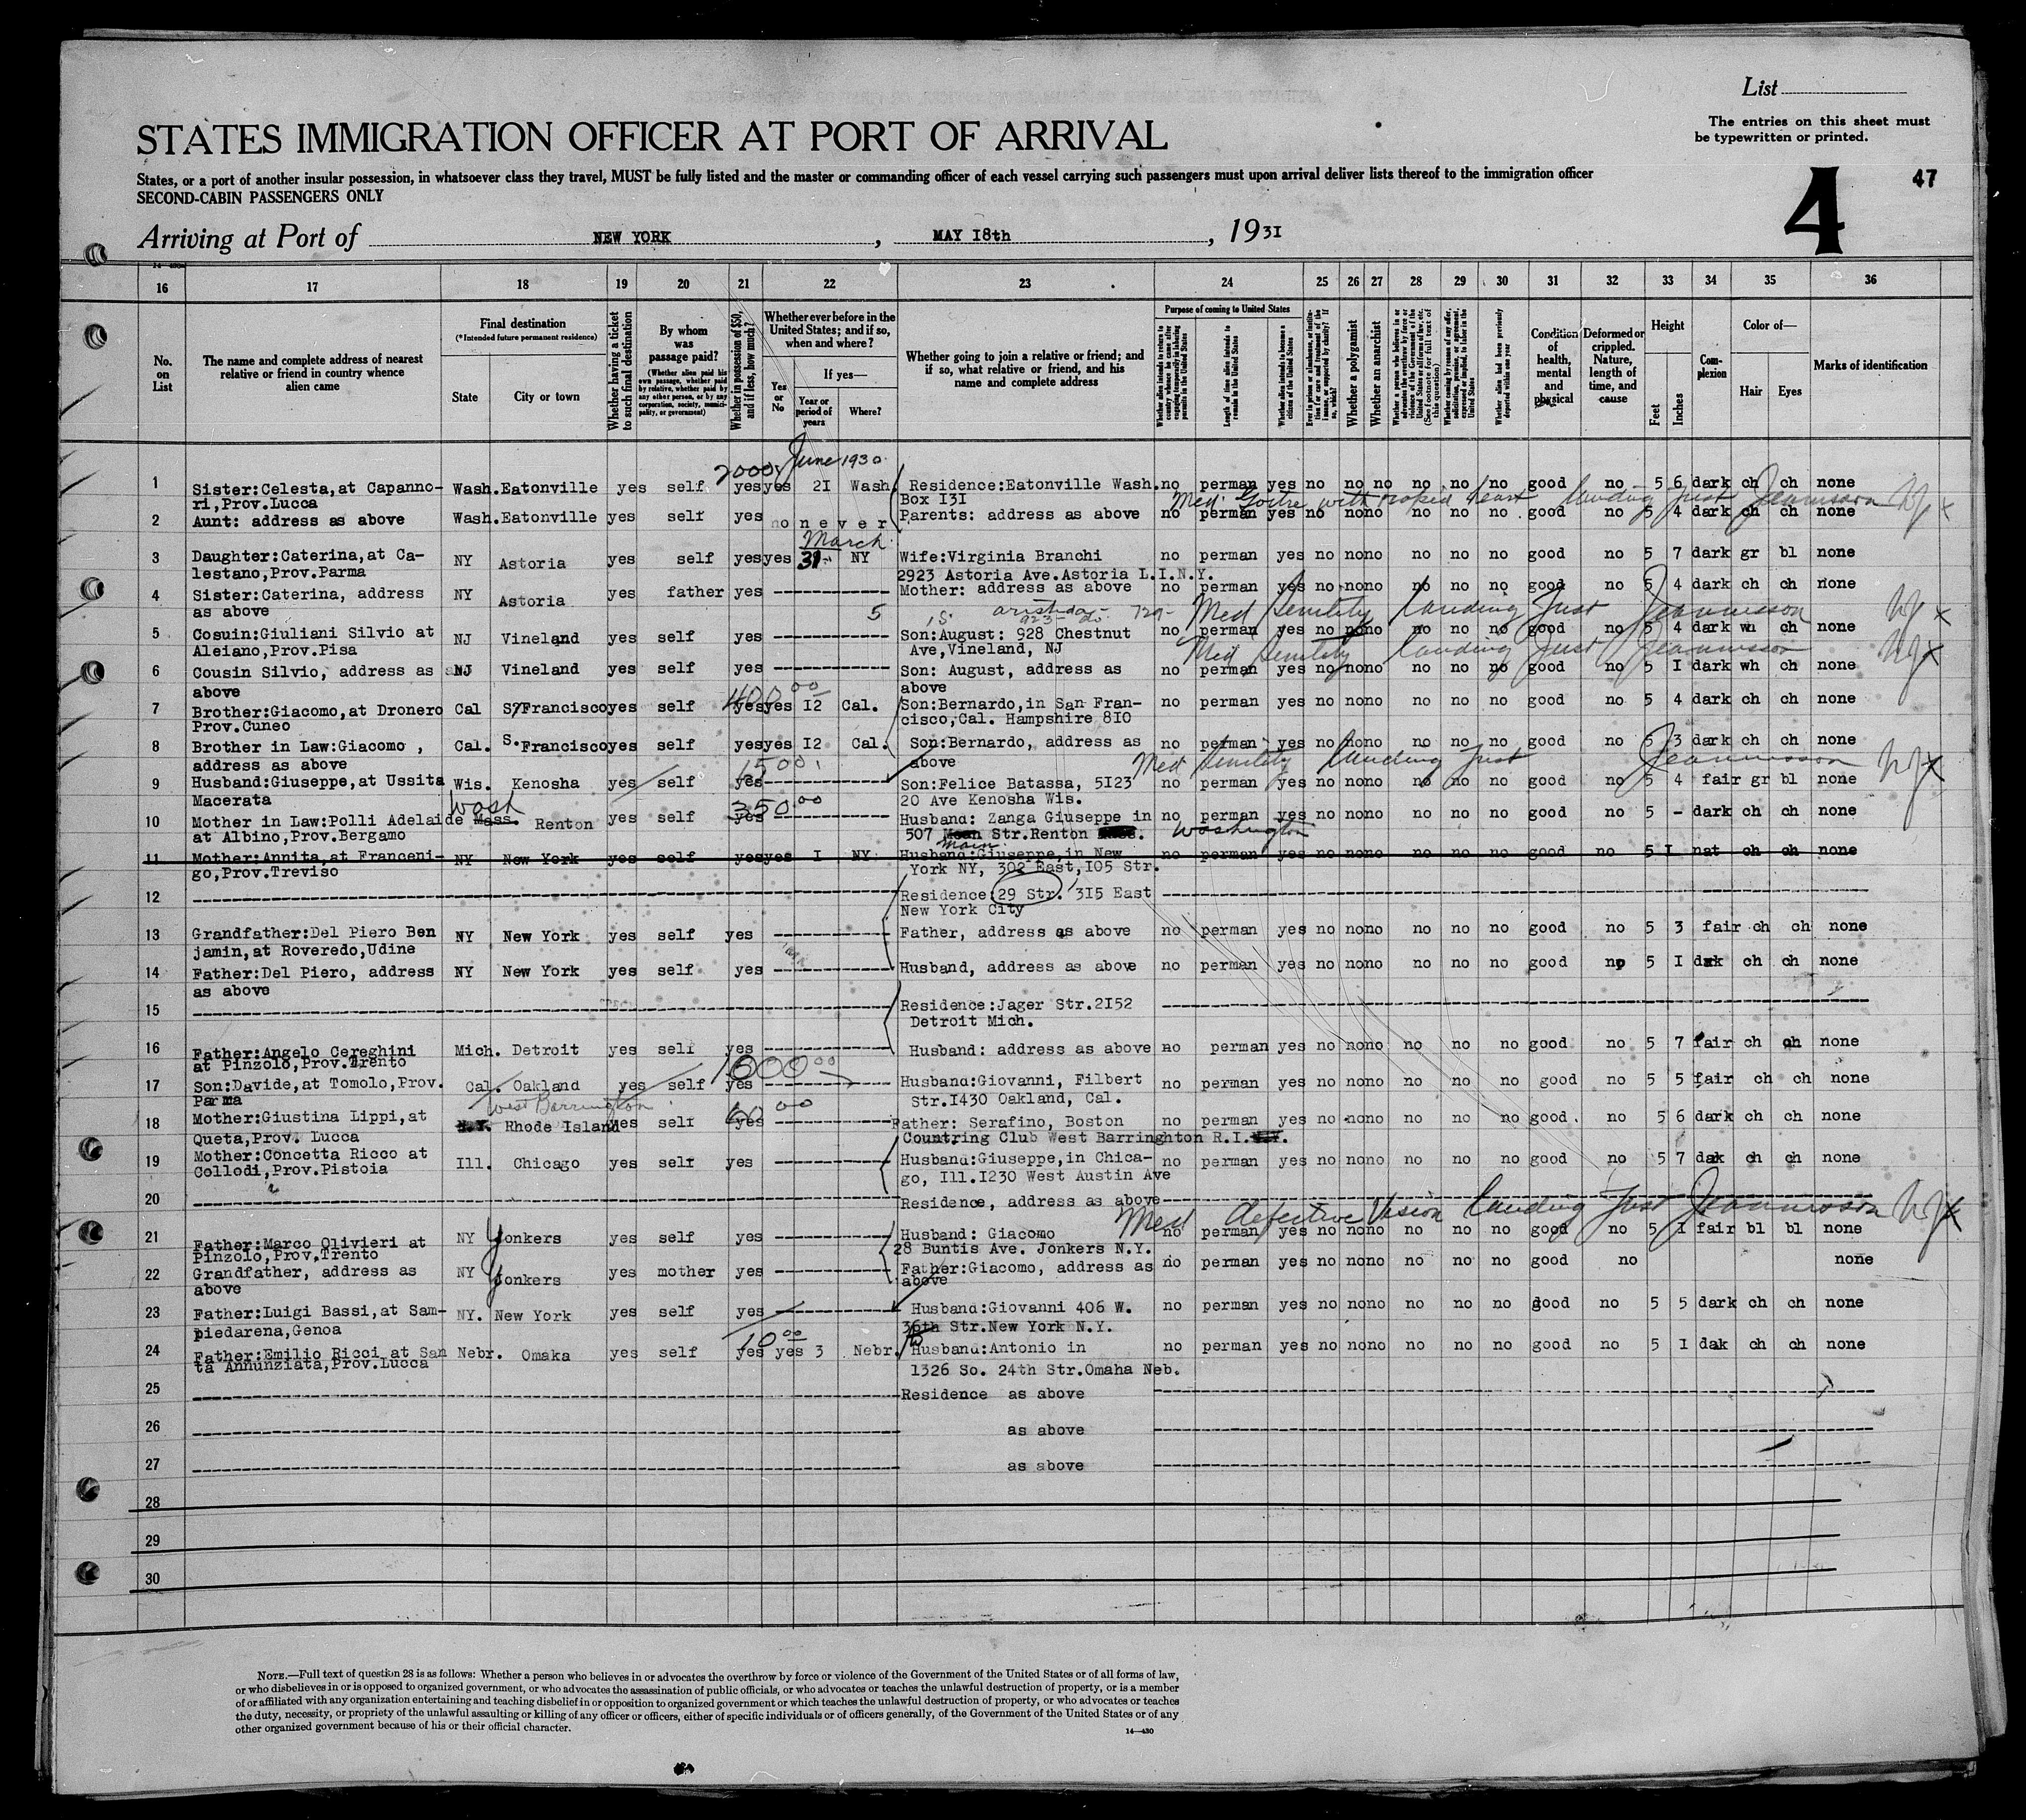 List
The entries on this sheet must
be typewritten or printed.
STATES IMMIGRATION OFFICER AT PORT OF ARRIVAL
States, or a port of another insular possession, in whatsoever class they travel, MUST be fully listed and the master or commanding officer of each vessel carrying such passengers must upon arrival deliver lists thereof to the immigration officer
SECOND-CABIN PASSENGERS ONLY
4
47
Arriving at Port of NEW YORK, MAY I8th, 1931
16 17 18 19 20 21 22 23 24 25 26 27 28 29 30 31 32 33 34 35 36
No. on List
The name and complete address of nearest relative or friend in country whence alien came
Final destination
(*Intended future permanent residence)
State
City or town
Whether having a ticket to such final destination
By whom was passage paid?
(Whether alien paid his own passage, whether paid by relative, whether paid by any other person, or by any corporation, society, municipality, or government)
Whether in possession of $50, and if less, how much?
Whether ever before in the United States; and if so, when and where?
Yes or No
If yes—
Year or period of years
Where?
Whether going to join a relative or friend; and if so, what relative or friend, and his name and complete address
Purpose of coming to United States
Length of time alien intends to remain in the United States
Whether alien intends to become a citizen of the United States
Whether a polygamist
Whether an anarchist
Condition of health, mental and physical
Deformed or crippled. Nature, length of time, and cause
Height
Feet
Inches
Complexion
Color of—
Hair
Eyes
Marks of identification
2000 June 1930
1 Sister:Celesta,at Capanno- Wash. Eatonville yes self yes yes 2I Wash Residence:Eatonville Wash. no perman yes no no no no no no good no 5 6 dark ch ch none
ri,Prov.Lucca Box I3I
Med. Goitre with rapid heart landing just Jeannisson
2 Aunt: address as above Wash. Eatonville yes self yes no never Parents: address as above no perman yes no no no no no no good no 5 4 dark ch ch none
March
3 Daughter:Caterina,at Ca- NY Astoria yes self yes yes 31 NY Wife:Virginia Branchi no perman yes no no no no no no good no 5 7 dark gr bl none
lestano,Prov.Parma 2923 Astoria Ave.Astoria L.I.N.Y.
4 Sister:Caterina, address NY Astoria yes father yes Mother: address as above no perman yes no no no no no no good no 5 4 dark ch ch none
as above
Med Senility landing just Jeannisson
5 Cosuin:Giuliani Silvio at NJ Vineland yes self yes Son:August: 928 Chestnut no perman yes no no no no no no good no 5 4 dark wh ch none
Aleiano,Prov.Pisa Ave,Vineland, NJ
Med Senility landing just Jeannisson
6 Cousin Silvio, address as NJ Vineland yes self yes Son: August, address as no perman yes no no no no no no good no 5 I dark wh ch none
above above
400 00
7 Brother:Giacomo,at Dronero Cal S.Francisco yes self yes yes I2 Cal. Son:Bernardo,in San Fran- no perman yes no no no no no no good no 5 4 dark ch ch none
Prov.Cuneo cisco,Cal. Hampshire 8IO
8 Brother in Law:Giacomo , Cal. S. Francisco yes self yes yes I2 Cal. Son:Bernardo, address as no perman yes no no no no no no good no 5 3 dark ch ch none
address as above above
1500 Med Senility landing just Jeannisson
9 Husband:Giuseppe,at Ussita Wis. Kenosha yes self yes Son:Felice Batassa, 5I23 no perman yes no no no no no no good no 5 4 fair gr bl none
Macerata 20 Ave Kenosha Wis.
Wash 350 00
10 Mother in Law:Polli Adelaide Mass. Renton yes self yes Husband: Zanga Giuseppe in no perman yes no no no no no no good no 5 - dark ch ch none
at Albino,Prov.Bergamo 507 Main Str.Renton Washington
11 Mother:Annita,at Franceni- NY New York yes self yes yes I NY Husband:Giuseppe,in New no perman yes no no no no no no good no 5 I nat ch ch none
go,Prov.Treviso York NY, 302 East,I05 Str.
12 Residence:29 Str. 3I5 East
New York City
13 Grandfather:Del Piero Ben NY New York yes self yes Father, address as above no perman yes no no no no no no good no 5 3 fair ch ch none
jamin,at Roveredo,Udine
14 Father:Del Piero, address NY New York yes self yes Husband, address as above no perman yes no no no no no no good no 5 I dak ch ch none
as above
15 Residence:Jager Str.2I52
Detroit Mich.
16 Father:Angelo Cereghini Mich. Detroit yes self yes Husband: address as above no perman yes no no no no no no good no 5 7 fair ch ch none
at Pinzolo,Prov.Trento
1000 00
17 Son:Davide,at Tomolo,Prov. Cal. Oakland yes self yes Husband:Giovanni, Filbert no perman yes no no no no no no good no 5 5 fair ch ch none
Parma Str.I430 Oakland, Cal.
West Barrington 60 00
18 Mother:Giustina Lippi,at N.Y. Rhode Island yes self yes Father: Serafino, Boston no perman yes no no no no no no good. no 5 6 dark ch ch none
Queta,Prov. Lucca Countring Club West Barringhton R.I.
19 Mother:Concetta Ricco at Ill. Chicago yes self yes Husband:Giuseppe,in Chica- no perman yes no no no no no no good no 5 7 dak ch ch none
Collodi,Prov.Pistoia go, Ill.I230 West Austin Ave
20 Residence, address as above
Med defective Vision landing just Jeannisson
21 Father:Marco Olivieri at NY Yonkers yes self yes Husband: Giacomo no perman yes no no no no no no good no 5 I fair bl bl none
Pinzolo,Prov.Trento 28 Buntis Ave. Jonkers N.Y.
22 Grandfather, address as NY Yonkers yes mother yes Father:Giacomo, address as no perman yes no no no no no no good no none
above above
23 Father:Luigi Bassi,at Sam- NY. New York yes self yes Husband:Giovanni 406 W. no perman yes no no no no no no good no 5 5 dark ch ch none
piedarena,Genoa 36th Str.New York N.Y.
10 00
24 Father:Emilio Ricci at San Nebr. Omaka yes self yes yes 3 Nebr. Husband:Antonio in no perman yes no no no no no no good no 5 I dak ch ch none
ta Annunziata,Prov.Lucca I326 So. 24th Str.Omaha Neb.
25 Residence as above
26 as above
27 as above
28
29
30
NOTE.—Full text of question 28 is as follows: Whether a person who believes in or advocates the overthrow by force or violence of the Government of the United States or of all forms of law,
or who disbelieves in or is opposed to organized government, or who advocates the assassination of public officials, or who advocates or teaches the unlawful destruction of property, or is a member
of or affiliated with any organization entertaining and teaching disbelief in or opposition to organized government or which teaches the unlawful destruction of property, or who advocates or teaches
the duty, necessity, or propriety of the unlawful assaulting or killing of any officer or officers, either of specific individuals or of officers generally, of the Government of the United States or of any
other organized government because of his or their official character.
14—430